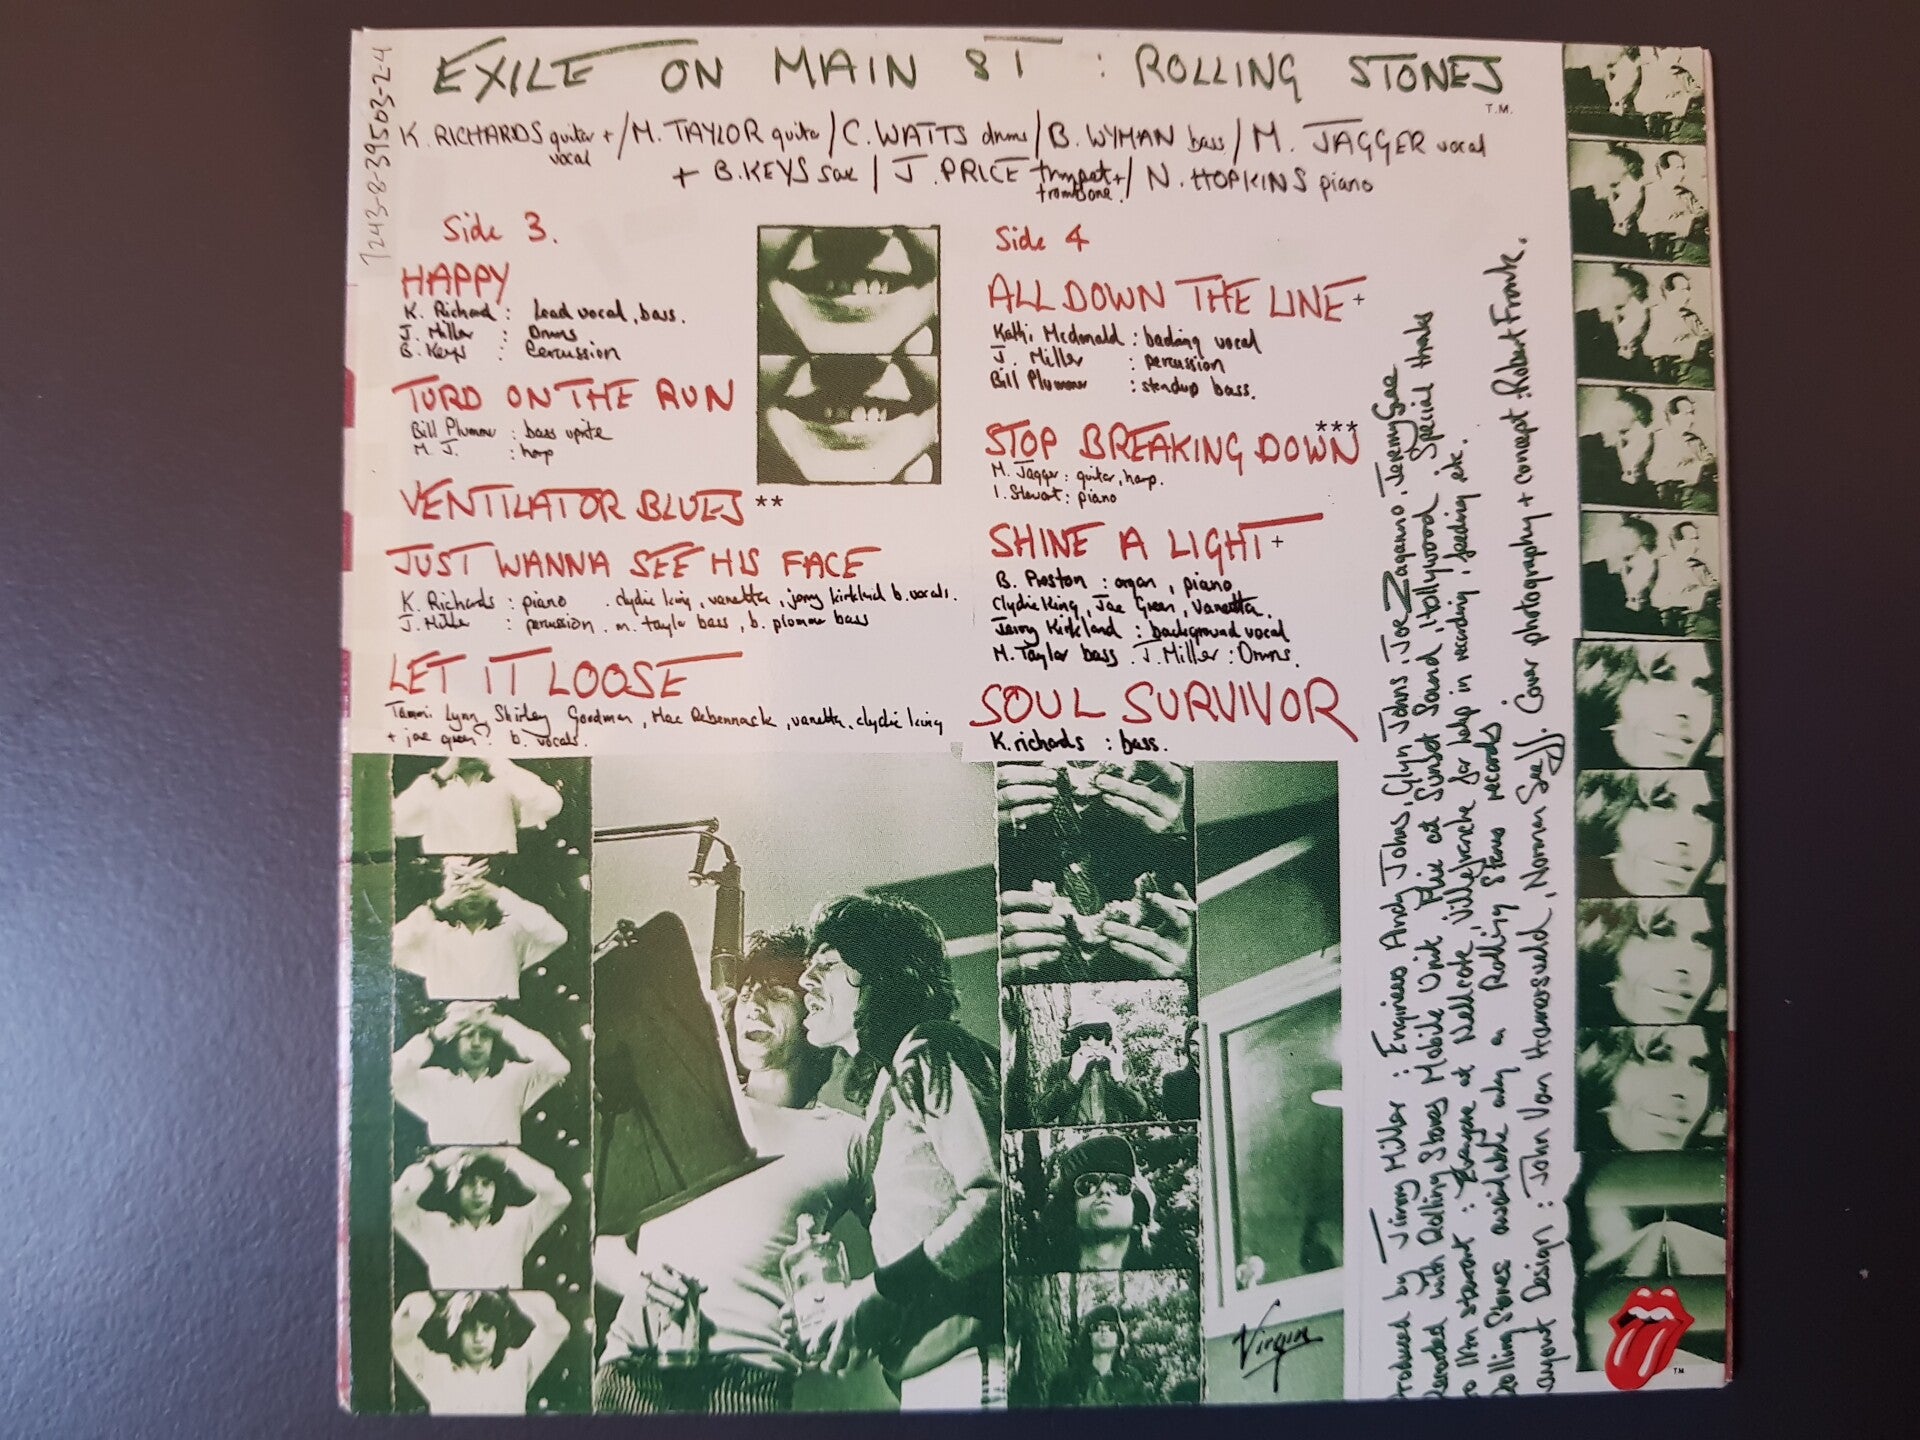 7243-8-39503-2-4
EXILE ON MAIN ST : ROLLING STONES
T.M.
K. RICHARDS guitar + vocal / M. TAYLOR guitar / C. WATTS drums / B. WYMAN bass / M. JAGGER vocal
+ B. KEYS sax / J. PRICE trumpet + trombone. / N. HOPKINS piano
Side 3.
HAPPY
K. Richard : Lead vocal, bass.
J. Miller : Drums
B. Keys : Percussion
TURD ON THE RUN
Bill Plummer : bass uprite
M. J. : harp
VENTILATOR BLUES **
JUST WANNA SEE HIS FACE
K. Richards : piano . clydie king, vanetta, jerry kirkland b. vocals.
J. Miller : percussion. m. taylor bass, b. plummer bass
LET IT LOOSE
Tammi Lynn, Shirley Goodman, Mac Rebennack, vanetta, clydie king
+ joe green : b. vocals.
Side 4
ALL DOWN THE LINE +
Kathi Mcdonald : backing vocal
J. Miller : percussion
Bill Plummer : standup bass.
STOP BREAKING DOWN ***
M. Jagger : guitar, harp.
I. Stewart : piano
SHINE A LIGHT +
B. Preston : organ, piano
Clydie King, Joe Green, Vanetta.
Jerry Kirkland : background vocal
M. Taylor bass . J. Miller : Drums.
SOUL SURVIVOR
K. richards : bass.
Produced by Jimmy Miller : Engineers Andy Johns, Glyn Johns, Joe Zagarino, Jeremy Gee
Recorded with Rolling Stones Mobile Unit Plus at Sunset Sound, Hollywood Special thanks
to Ian stewart : Everyone at Nellcote, Villefranche for help in recording, feeding etc.
Rolling Stones available only on Rolling Stones records
Layout Design : John Van Hamersveld, Norman Seeff. Cover photography + concept : Robert Frank.
Virgin
TM